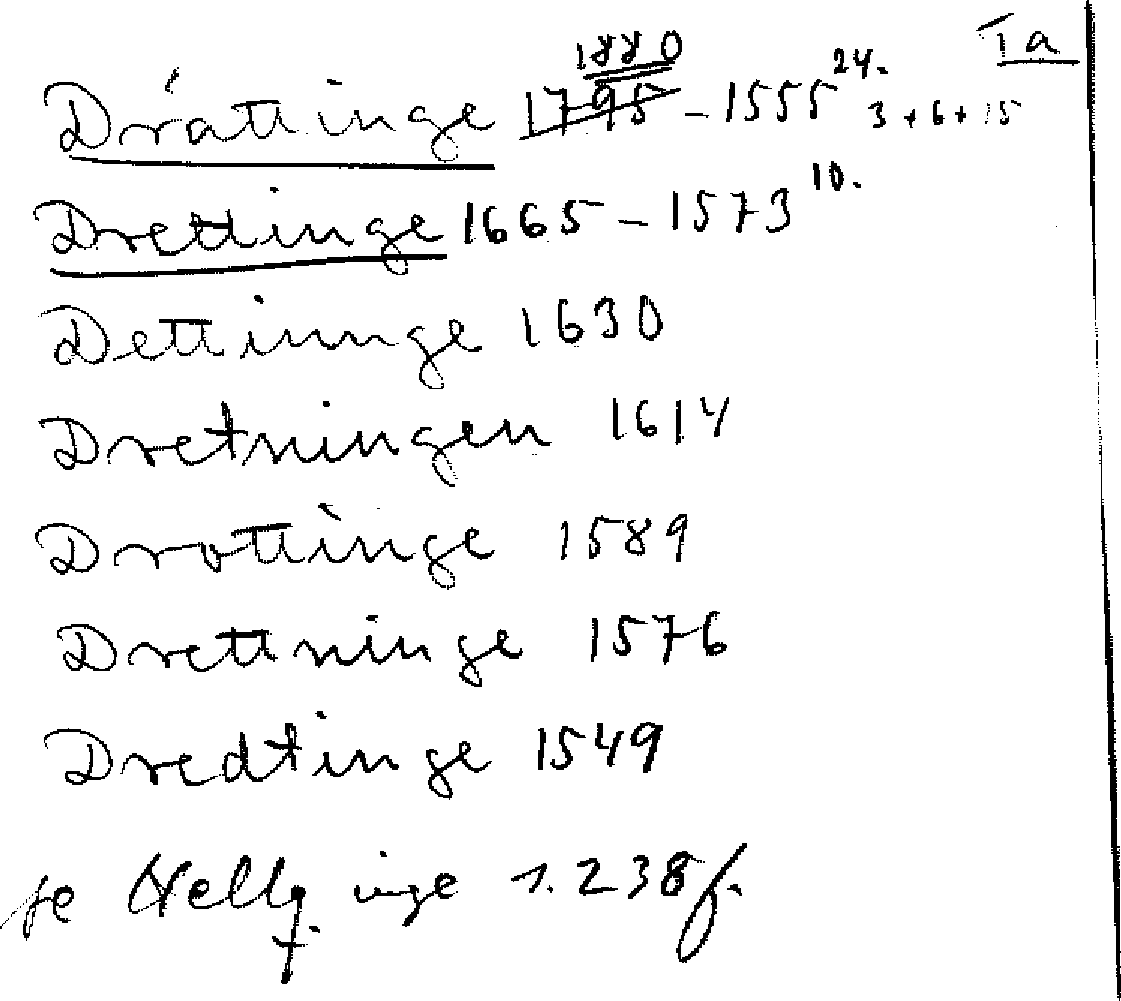 Ta
1880
Drättinge 1795 - 1555 24. 3 + 6 + 15
Drettinge 1665 - 1573 10.
Dettinnge 1630
Dretningen 1614
Drottinge 1589
Drettninge 1576
Dredtinge 1549
se Hellq. inge s. 238 f.